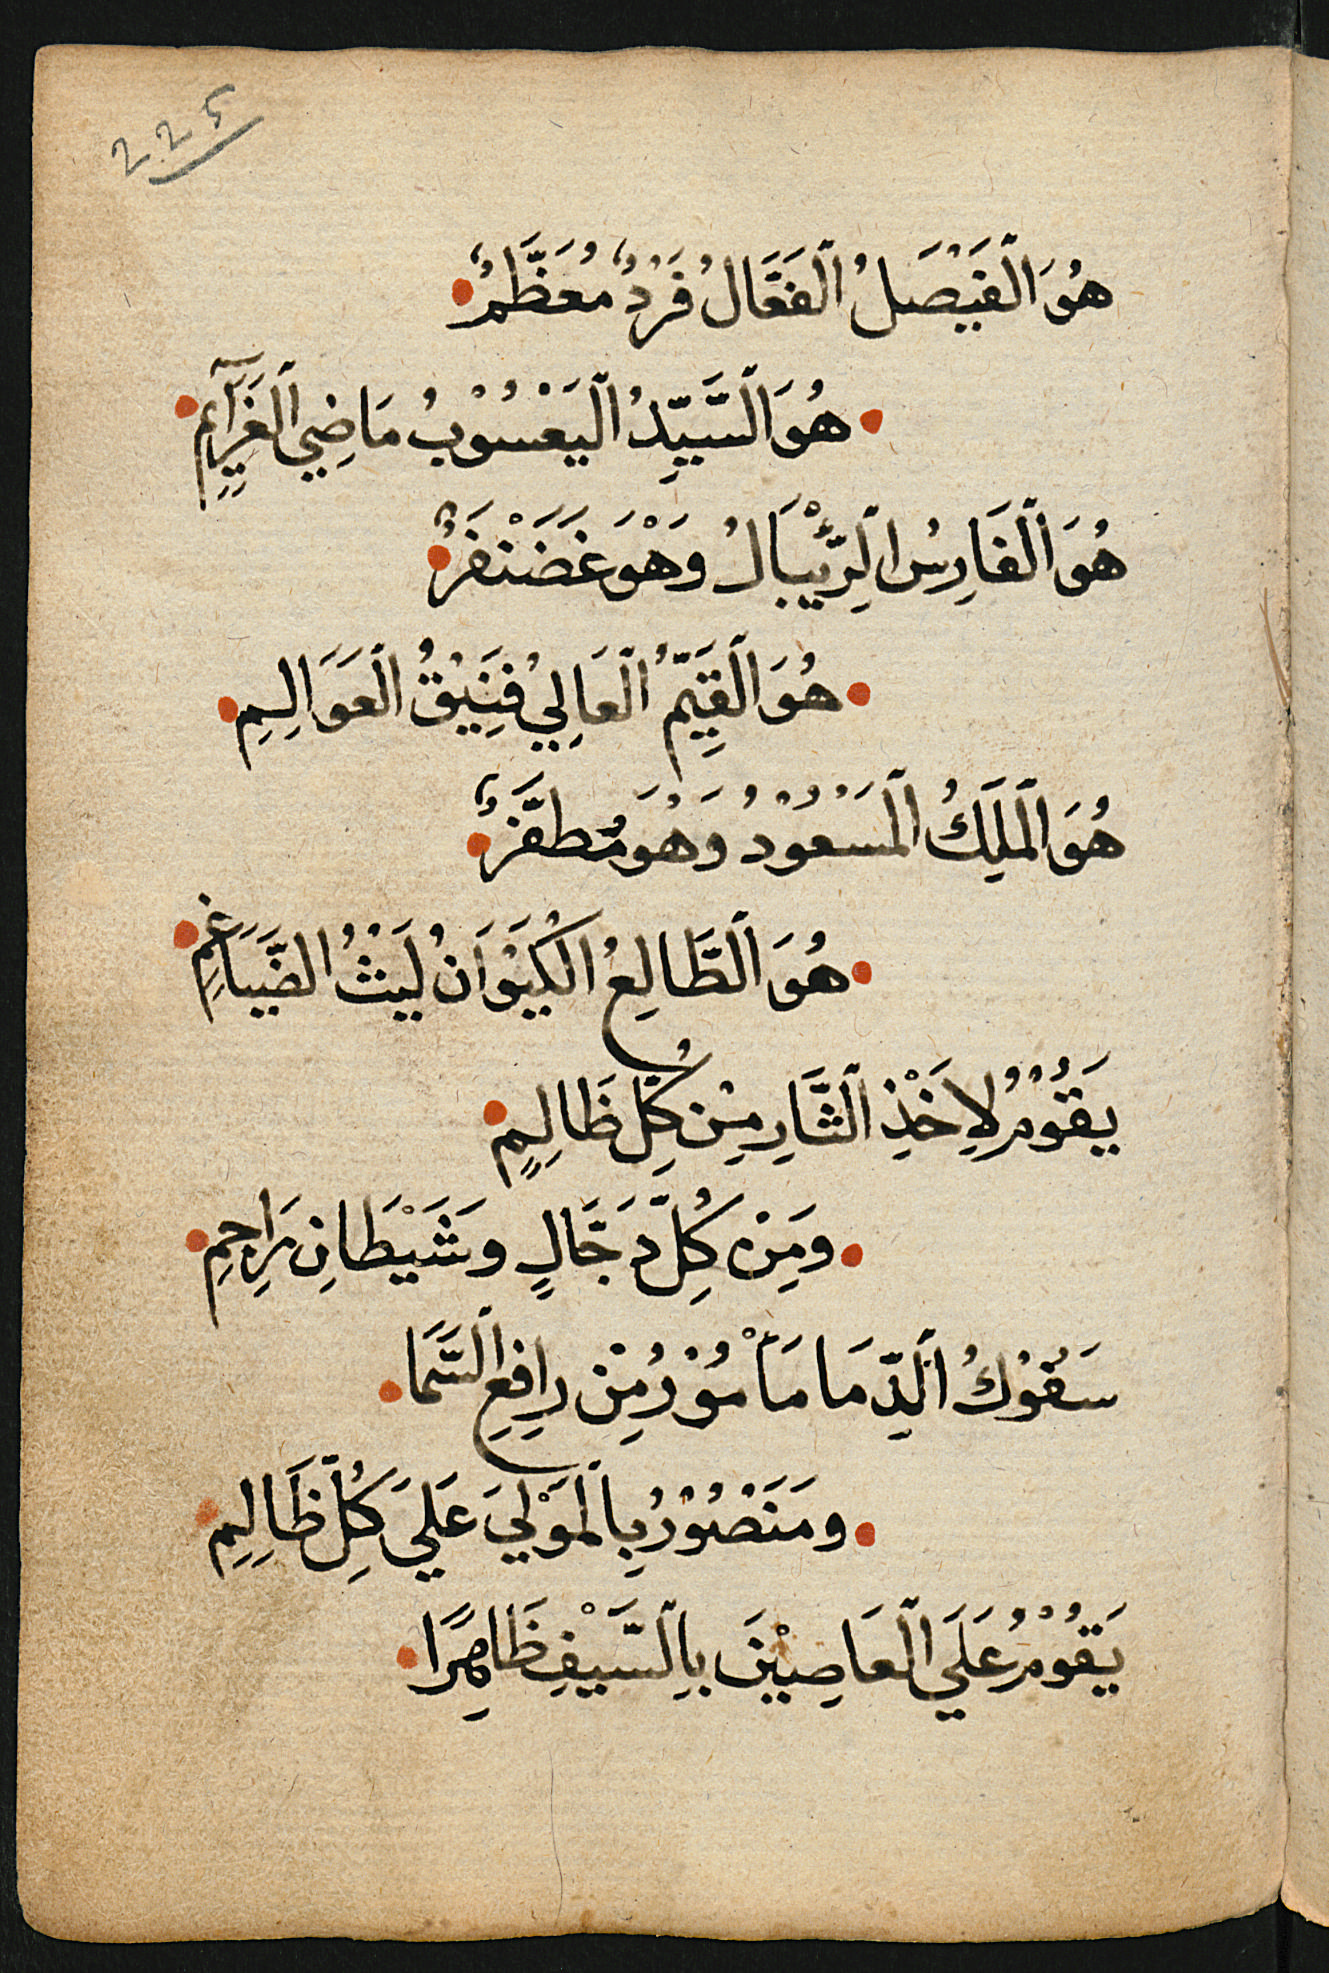 ٢٢٤
هُوَ الْفَيْصَلُ الْفَعَّالُ فَرْدٌ مُعَظَّمٌ
هُوَ السَّيِّدُ الْيَعْسُوْبُ مَاضِي الْعَزَآيِمِ
هُوَ الْفَارِسُ الرِّئْبَالُ وَهْوَ غَضَنْفَرٌ
هُوَ الْقَيِّمُ الْعَالِيْ فَنِيْقُ الْعَوَالِمِ
هُوَ الْمَلِكُ الْمَسْعُوْدُ وَهُوَ مُظَفَّرٌ
هُوَ الطَّالِعُ الْكَيْوَانُ لَيْثُ الضَّيَاغِمِ
يَقُوْمُ لِاَخْذِ الثَّارِ مِنْ كُلِّ ظَالِمٍ
وَمِنْ كُلِّ دَجَّالٍ وَشَيْطَانِ رَاجِمِ
سَفُوْكُ الدِّمَا مَأْمُوْرُ مِنْ رَافِعِ السَّمَا
وَمَنْصُوْرُ بِالْمَوْلَي عَلَي كُلِّ ظَالِمِ
يَقُوْمُ عَلَي الْعَاصِيْنَ بِالسَّيْفِ ظَاهِرًا